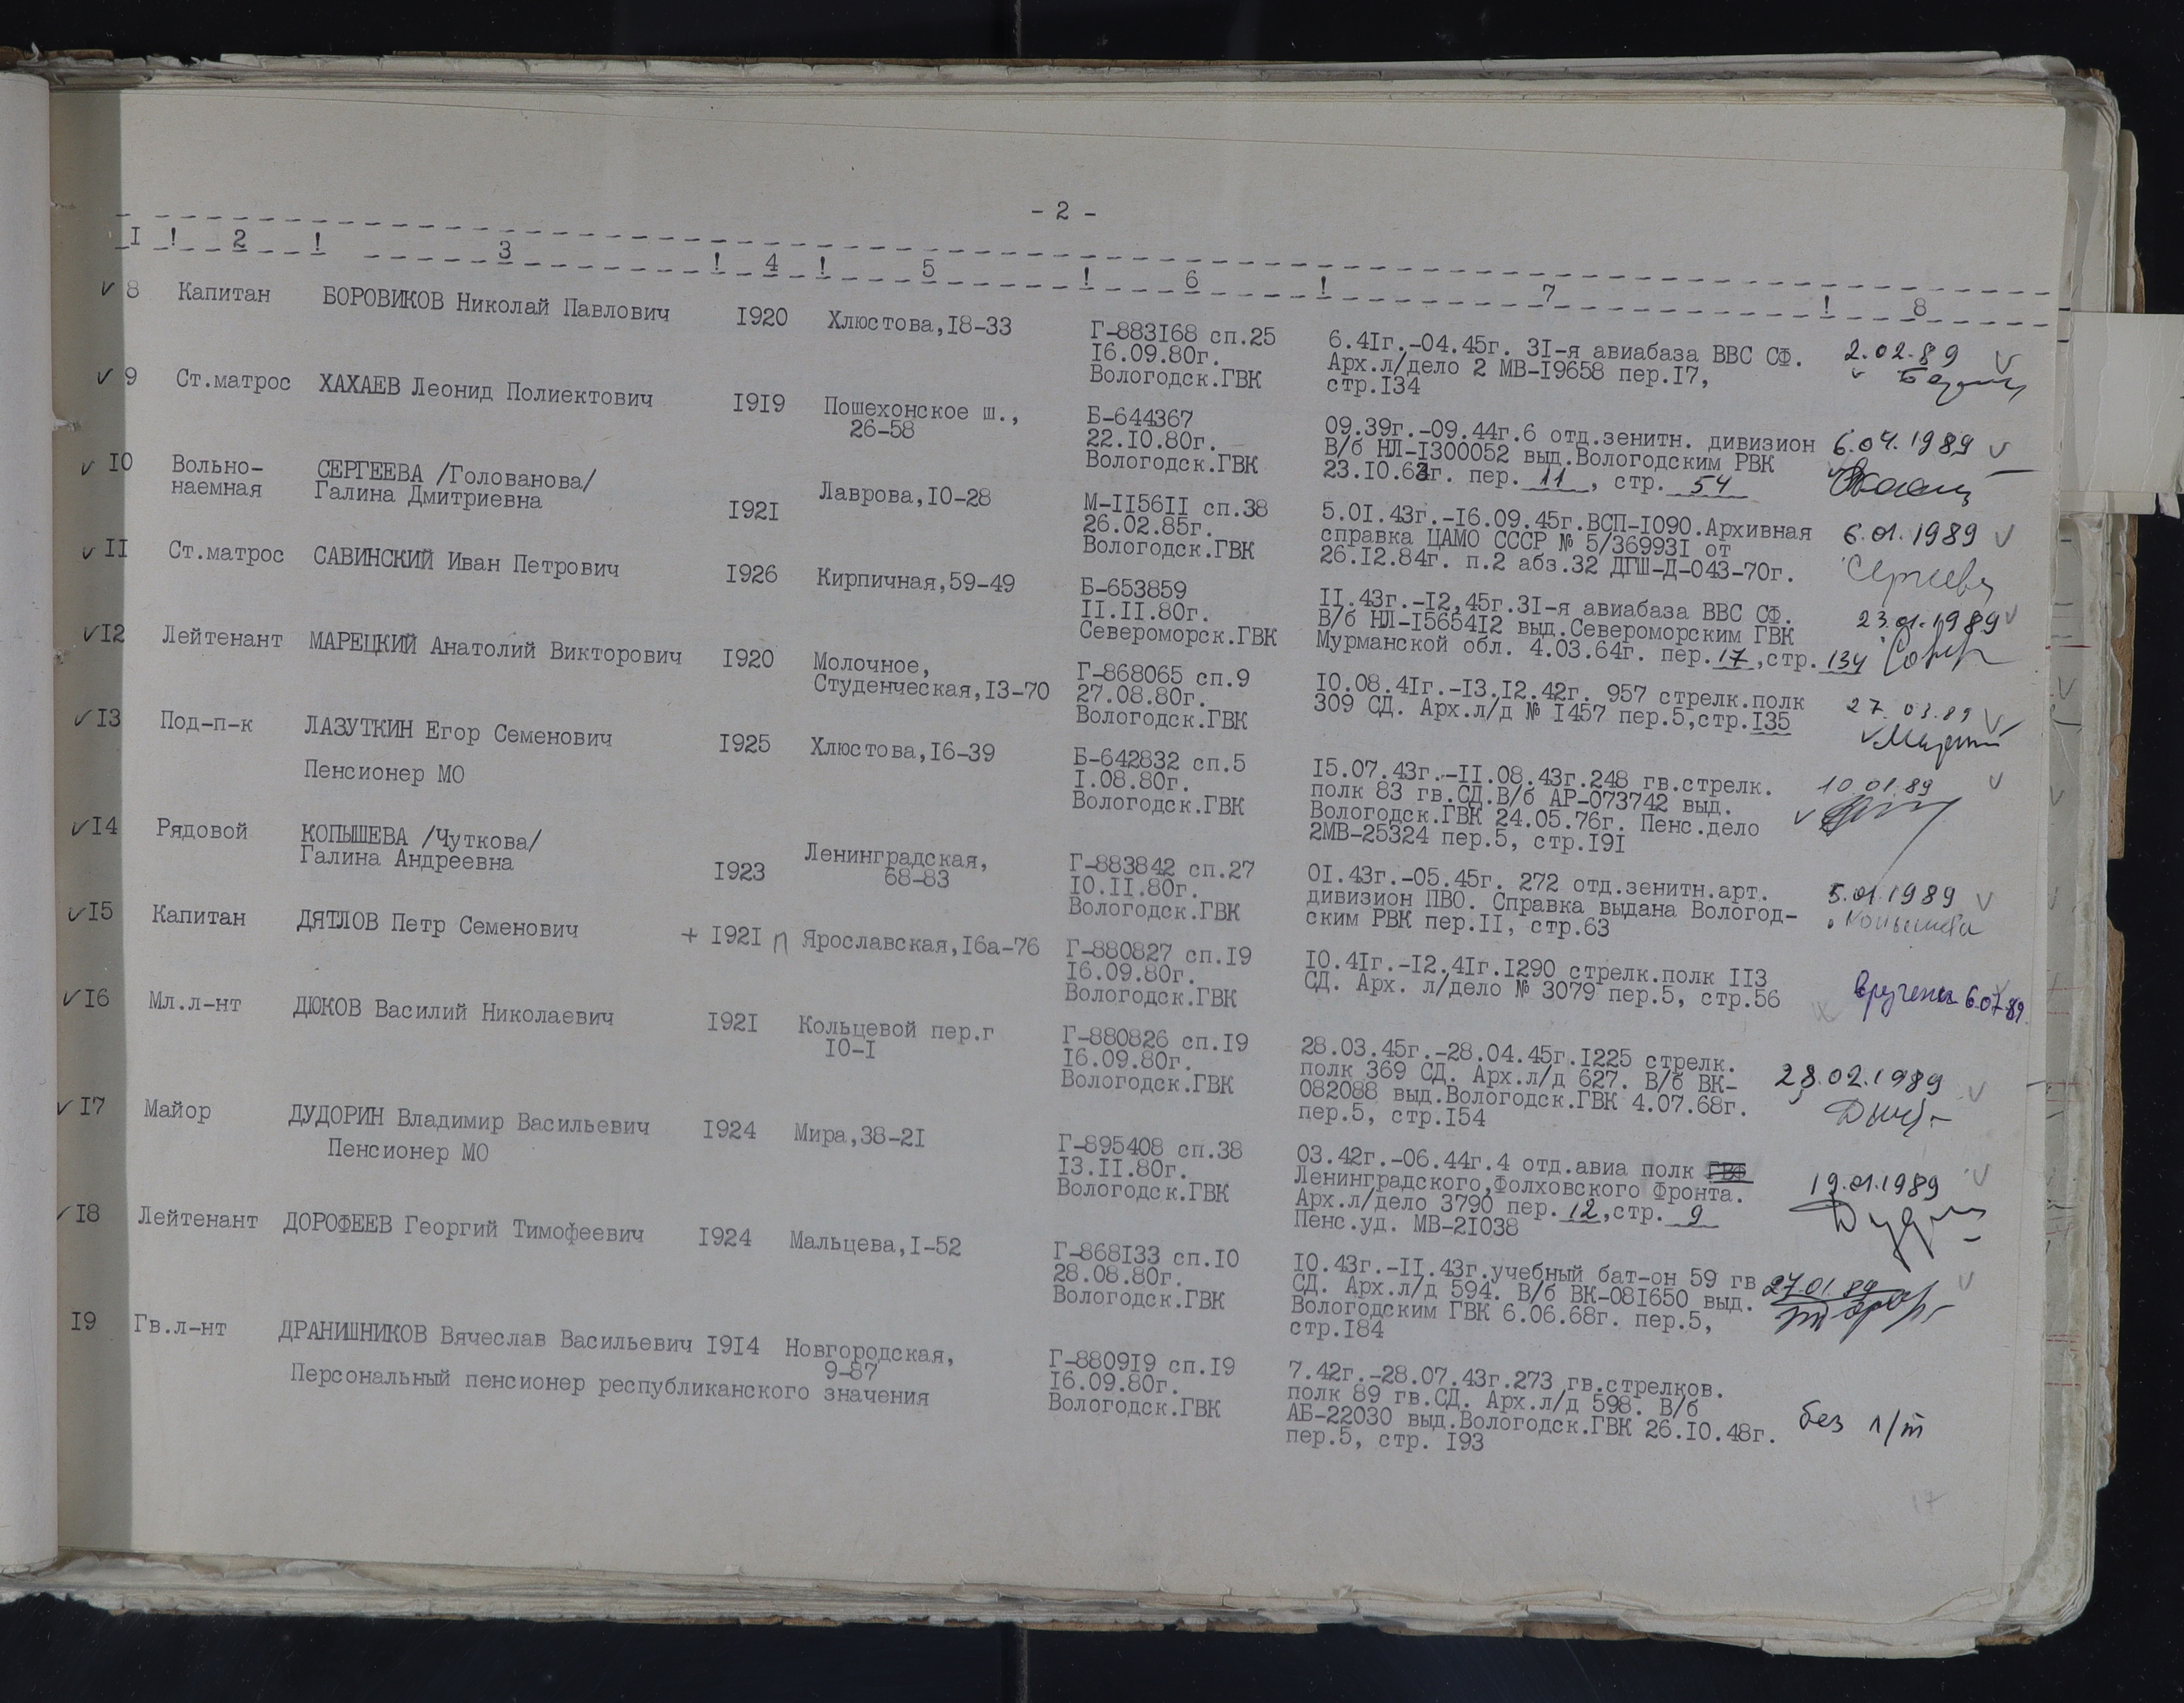 - 2 -
I ! 2 ! 3 ! 4 ! 5 ! 6 ! 7 ! 8
8 Капитан БОРОВИКОВ Николай Павлович I920 Хлюстова,I8-33 Г-883I68 сп.25 6.4Iг.-04.45г. 3I-я авиабаза ВВС СФ. 2.02.89
I6.09.80г. Арх.л/дело 2 МВ-I9658 пер.I7,
Вологодск.ГВК стр.I34
9 Ст.матрос ХАХАЕВ Леонид Полиектович I9I9 Пошехонское ш., Б-644367 09.39г.-09.44г.6 отд.зенитн. дивизион 6.04.1989
26-58 22.I0.80г. В/б НЛ-I300052 выд.Вологодским РВК
Вологодск.ГВК 23.I0.63г. пер. 11, стр. 54
I0 Вольно- СЕРГЕЕВА /Голованова/ I92I Лаврова,I0-28 М-II56II сп.38 5.0I.43г.-I6.09.45г.ВСП-I090.Архивная 6.01.1989
наемная Галина Дмитриевна 26.02.85г. справка ЦАМО СССР № 5/36993I от
Вологодск.ГВК 26.I2.84г. п.2 абз.32 ДГШ-Д-043-70г. Сергеева
II Ст.матрос САВИНСКИЙ Иван Петрович I926 Кирпичная,59-49 Б-653859 II.43г.-I2,45г.3I-я авиабаза ВВС СФ. 23.01.1989
II.II.80г. В/б НЛ-I5654I2 выд.Североморским ГВК
Североморск.ГВК Мурманской обл. 4.03.64г. пер.17,стр.134
I2 Лейтенант МАРЕЦКИЙ Анатолий Викторович I920 Молочное, Г-868065 сп.9 I0.08.4Iг.-I3.I2.42г. 957 стрелк.полк 27.03.89
Студенческая,I3-70 27.08.80г. 309 СД. Арх.л/д № I457 пер.5,стр.I35
Вологодск.ГВК
I3 Под-п-к ЛАЗУТКИН Егор Семенович I925 Хлюстова,I6-39 Б-642832 сп.5 I5.07.43г.-II.08.43г.248 гв.стрелк. 10.01.89
Пенсионер МО I.08.80г. полк 83 гв.СД.В/б АР-073742 выд.
Вологодск.ГВК Вологодск.ГВК 24.05.76г. Пенс.дело
2МВ-25324 пер.5, стр.I9I
I4 Рядовой КОПЫШЕВА /Чуткова/ I923 Ленинградская, Г-883842 сп.27 0I.43г.-05.45г. 272 отд.зенитн.арт. 5.01.1989
Галина Андреевна 68-83 I0.II.80г. дивизион ПВО. Справка выдана Вологод- Копышева
Вологодск.ГВК ским РВК пер.II, стр.63
I5 Капитан ДЯТЛОВ Петр Семенович + I92I П Ярославская,I6а-76 Г-880827 сп.I9 I0.4Iг.-I2.4Iг.I290 стрелк.полк II3 вручена 6.07.89
I6.09.80г. СД. Арх. л/дело № 3079 пер.5, стр.56
Вологодск.ГВК
I6 Мл.л-нт ДЮКОВ Василий Николаевич I92I Кольцевой пер.г Г-880826 сп.I9 28.03.45г.-28.04.45г.I225 стрелк. 28.02.1989
I0-I I6.09.80г. полк 369 СД. Арх.л/д 627. В/б ВК-
Вологодск.ГВК 082088 выд.Вологодск.ГВК 4.07.68г.
пер.5, стр.I54
I7 Майор ДУДОРИН Владимир Васильевич I924 Мира,38-2I Г-895408 сп.38 03.42г.-06.44г.4 отд.авиа полк ГВФ 19.01.1989
Пенсионер МО I3.II.80г. Ленинградского,Фолховского Фронта.
Вологодск.ГВК Арх.л/дело 3790 пер. 12,стр. 9
Пенс.уд. МВ-2I038
I8 Лейтенант ДОРОФЕЕВ Георгий Тимофеевич I924 Мальцева,I-52 Г-868I33 сп.I0 I0.43г.-II.43г.учебный бат-он 59 гв 27.01.89
28.08.80г. СД. Арх.л/д 594. В/б ВК-08I650 выд.
Вологодск.ГВК Вологодским ГВК 6.06.68г. пер.5,
стр.I84
I9 Гв.л-нт ДРАНИШНИКОВ Вячеслав Васильевич I9I4 Новгородская, Г-8809I9 сп.I9 7.42г.-28.07.43г.273 гв.стрелков.
9-87 I6.09.80г. полк 89 гв.СД. Арх.л/д 598. В/б
Персональный пенсионер республиканского значения Вологодск.ГВК АБ-22030 выд.Вологодск.ГВК 26.I0.48г. без л/т
пер.5, стр. I93
17